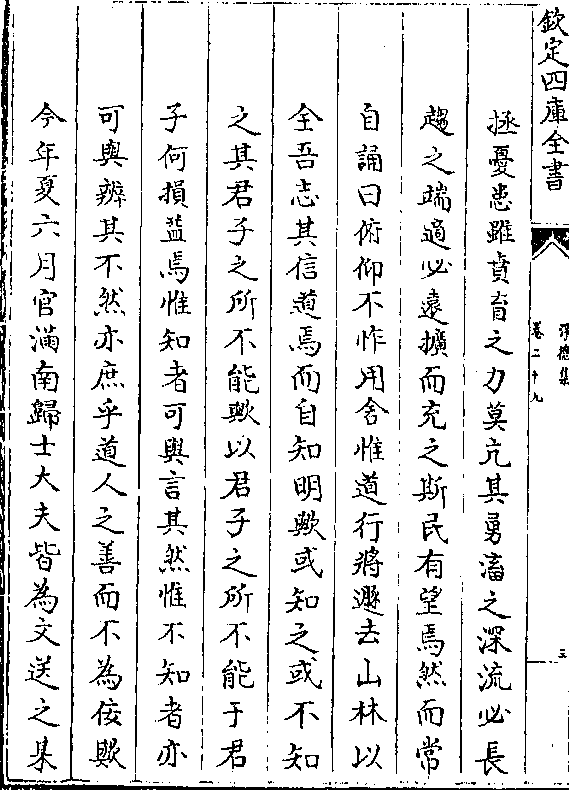 欽定四庫全書
淨德集
卷二十九
三
拯憂患雖賁育之力莫亢其勇滀之深流必長
趨之端適必遠擴而充之斯民有望焉然而常
自誦曰俯仰不怍用舍惟道行將遯去山林以
全吾志其信道焉而自知明歟或知之或不知
之其君子之所不能歟以君子之所不能于君
子何損益焉惟知者可與言其然惟不知者亦
可與辨其不然亦庶乎道人之善而不為佞歟
今年夏六月官滿南歸士大夫皆為文送之某